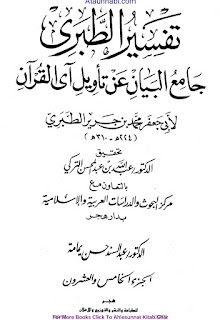 Ataunnabi.com
تفسير الطبري
جامع البيان عن تأويل آي القرآن
لأبي جعفر محمد بن جرير الطبري
(٢٢٤هـ - ٣١٠هـ)
تحقيق
الدكتور عبد الله بن عبد المحسن التركي
بالتعاون مع
مركز البحوث والدراسات العربية والإسلامية
بدار هجر
الدكتور عبد السند حسن يمامة
الجزء الخامس والعشرون
هجر
للطباعة والنشر والتوزيع والإعلان
For More Books Click To Ahlesunnat Kitab Ghar